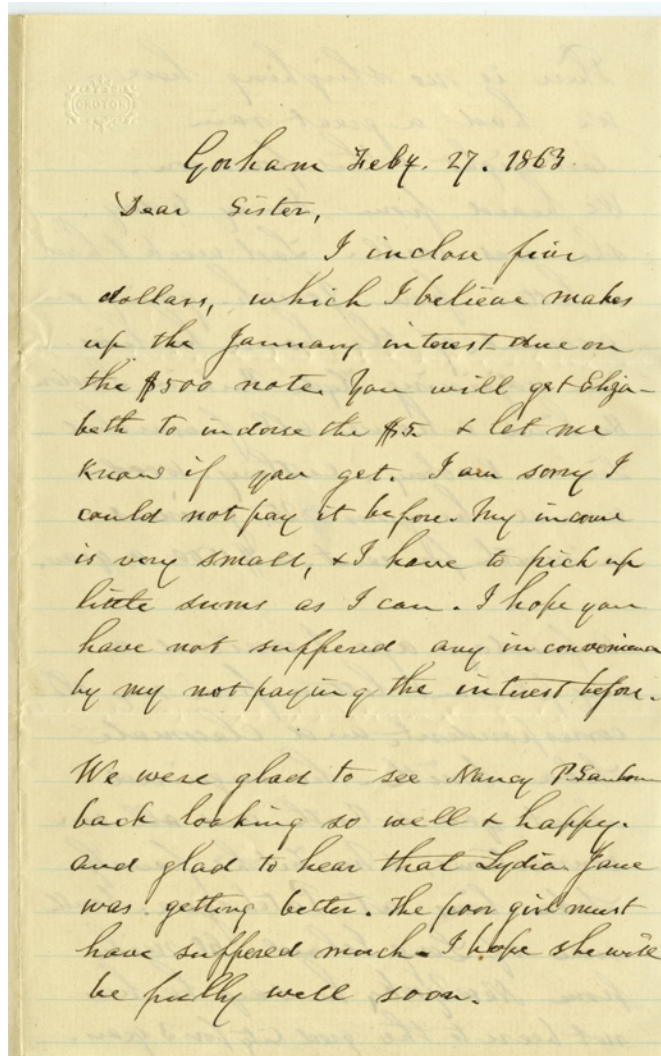 CROTON
Gorham Feby. 27. 1863.
Dear Sister,
I inclose five
dollars, which I believe makes
up the January interest due on
the $500 note. You will get Eliza-
beth to indorse the $5. & let me
know if you get. I am sorry I
could not pay it before. My income
is very small, & I have to pick up
little sums as I can. I hope you
have not suffered any inconvenience
by my not paying the interest before.
We were glad to see Nancy P.
back looking so well & happy.
and glad to hear that Lydia Jane
was getting better. The poor girl must
have suffered much. I hope she will
be fully well soon.